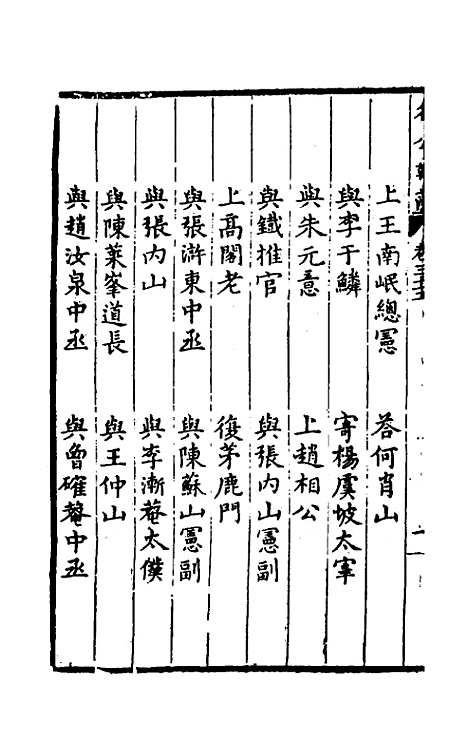 上王南岷總憲 荅何肖山
與李于鱗 寄楊虞坡太宰
與朱元意 上趙相公
與鐵推官 與張内山憲副
上高閣老 復茅鹿門
與張滸東中丞 與陳蘇山憲副
與張内山 與李漸菴太僕
與陳萊峯道長 與王仲山
與趙汝泉中丞 與曾確菴中丞